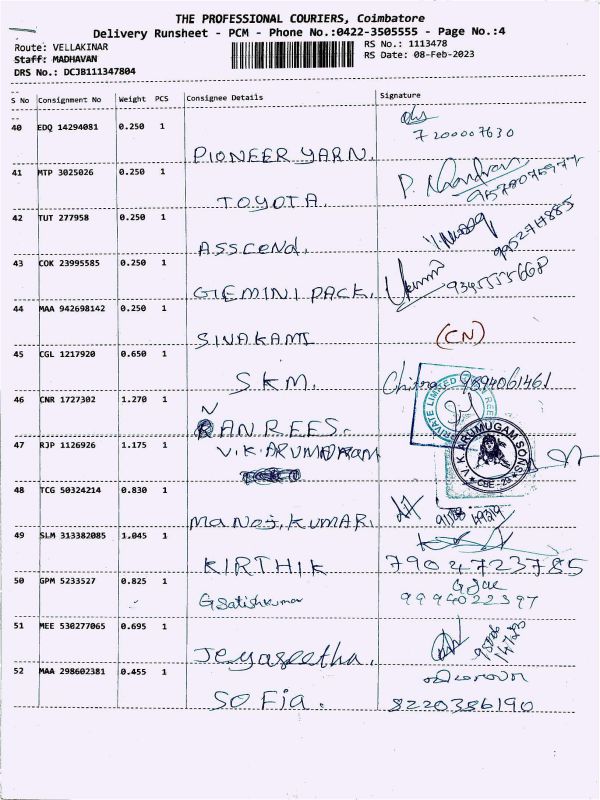 THE PROFESSIONAL COURIERS, Coimbatore
Delivery Runsheet - PCM - Phone No.:0422-3505555 - Page No.:4
Route: VELLAKINAR
RS No.: 1113478
Staff: MADHAVAN
RS Date: 08-Feb-2023
DRS No.: DCJB111347804
S No Consignment No Weight PCS Consignee Details Signature
40 EDQ 14294081 0.250 1
7200007630
PIONEER YARN.
41 MTP 3025026 0.250 1
TOYOTA.
42 TUT 277958 0.250 1
ASSCEND.
43 COK 23995585 0.250 1
GEMINI PACK.
44 MAA 942698142 0.250 1
SIVAKAMI
(CN)
45 CGL 1217920 0.650 1
S.K.M.
Chitra 9894061461
46 CNR 1727302 1.270 1
PRIVATE LIMITED
RANREES.
47 RJP 1126926 1.175 1
V.K.ARUMUGAM
V.K. ARUMUGAM SONS
CBE - 29
48 TCG 50324214 0.830 1
Manoj.KUMAR.
49 SLM 313382085 1.045 1
KIRTHIK
7904723785
50 GPM 5233527 0.825 1
G Satishkumar
9994022397
51 MEE 530277065 0.695 1
Jeyaseetha.
52 MAA 298602381 0.455 1
SOFia.
8220386190